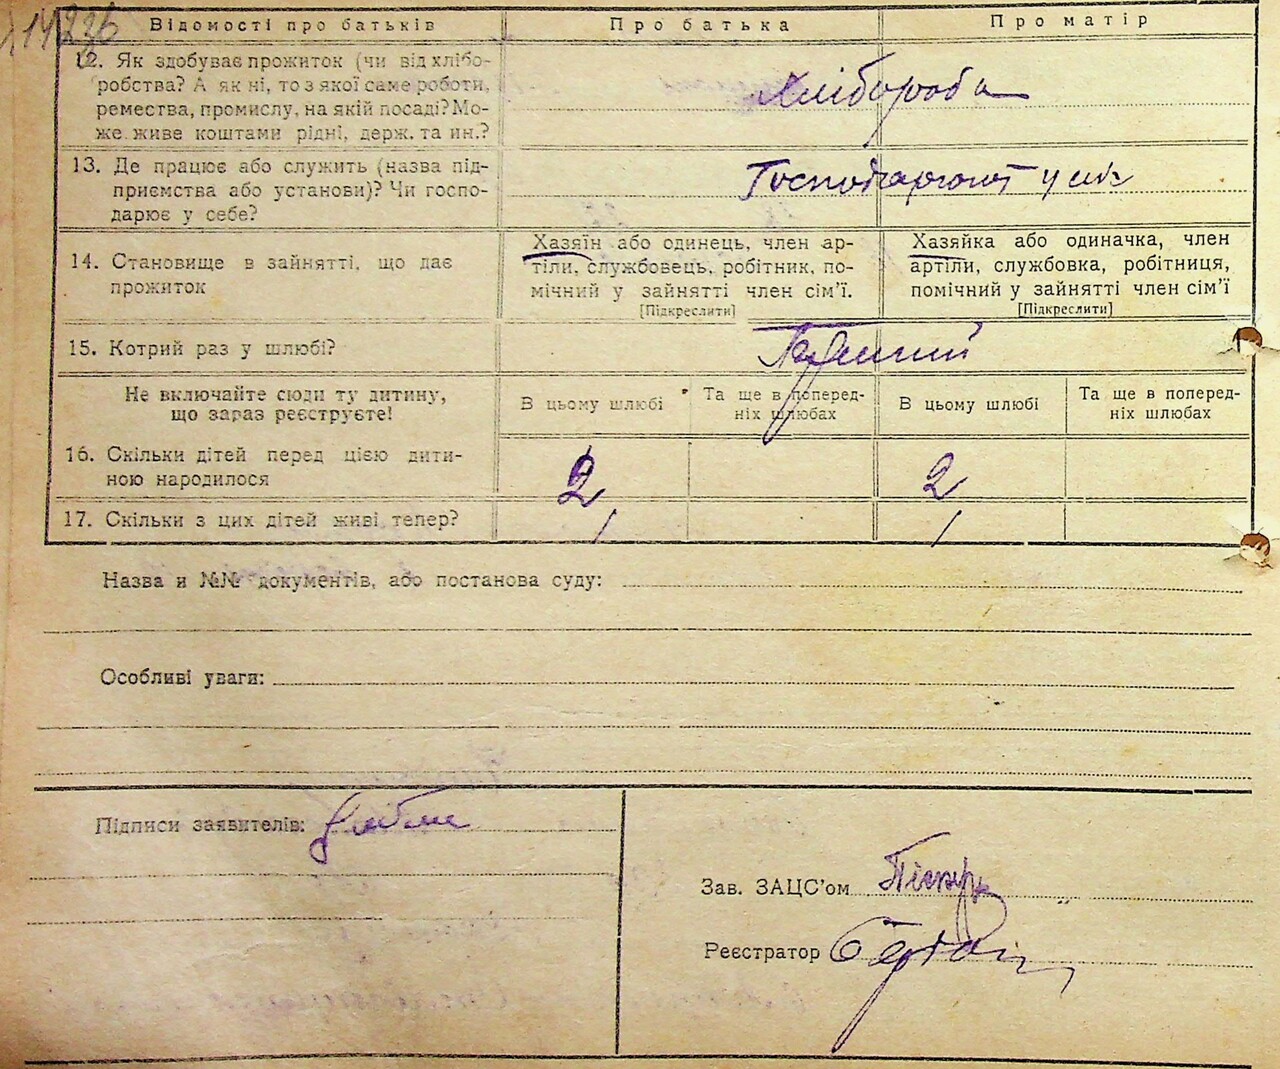 14236
Відомості про батьків Про батька Про матір
12. Як здобуває прожиток (чи від хлібо-
робства? А як ні, то з якої саме роботи,
ремества, промислу, на якій посаді? Мо-
же живе коштами рідні, держ. та ин.?
Хлібороба
13. Де працює або служить (назва під-
приємства або установи)? Чи госпо-
дарює у себе?
14. Становище в зайнятті, що дає
прожиток
Хазяїн або одинець, член ар-
тіли, службовець, робітник, по-
мічний у зайнятті член сім'ї.
[Підкреслити]
Хазяйка або одиначка, член
артіли, службовка, робітниця,
помічний у зайнятті член сім'ї
[Підкреслити]
15. Котрий раз у шлюбі?
Не включайте сюди ту дитину,
що зараз реєструєте!
В цьому шлюбі
Та ще в поперед-
ніх шлюбах
В цьому шлюбі
Та ще в поперед-
ніх шлюбах
16. Скільки дітей перед цією дити-
ною народилося
2 2
17. Скільки з цих дітей живі тепер?
1 1
Назва и №№ документів, або постанова суду:
Особливі уваги:
Підписи заявителів:
Зав. ЗАЦС'ом
Реєстратор